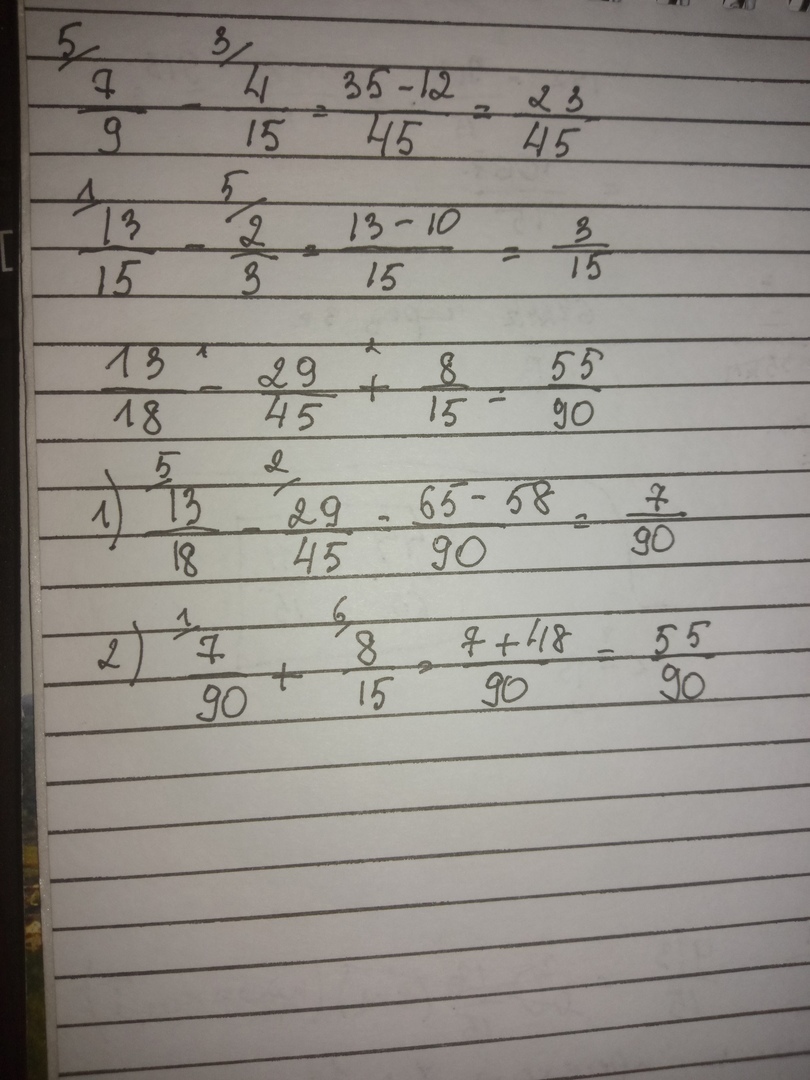 5/ 3/
7/9 - 4/15 = 35-12/45 = 23/45
1/ 5/
13/15 - 2/3 = 13-10/15 = 3/15
1 2
13/18 - 29/45 + 8/15 = 55/90
5/ 2/
1) 13/18 - 29/45 = 65-58/90 = 7/90
1/ 6/
2) 7/90 + 8/15 = 7+48/90 = 55/90